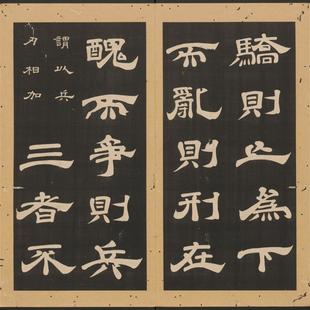 驕則亡為下
而亂則刑在
醜而爭則兵
謂以兵
刃相加
三者不